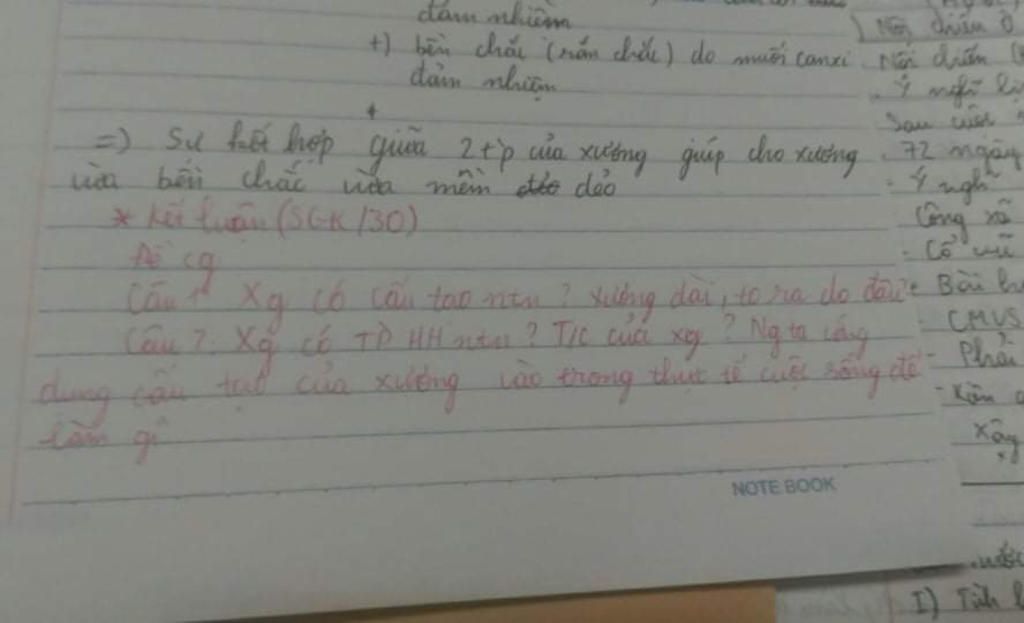 đảm nhiệm
+) bền chắc (rắn chắc) do muối canxi
đảm nhiệm
=) Sự kết hợp giữa 2 tp của xương giúp cho xương
vừa bền chắc vừa mềm dẻo
* Kết luận (SGK/30)
Đề cg
Câu 1 Xg có cấu tạo ntn? Xương dài, to ra do đâu
Câu 2. Xg có TP HH ntn? T/C của xg? Ng ta ứng
dụng cấu tạo của xương vào trong thực tế cuộc sống để
làm gì
NOTE BOOK
72 ngày
- Ý ngh
Công xã
- Bài h
CMVS
- Phải
Xây
I) Tình